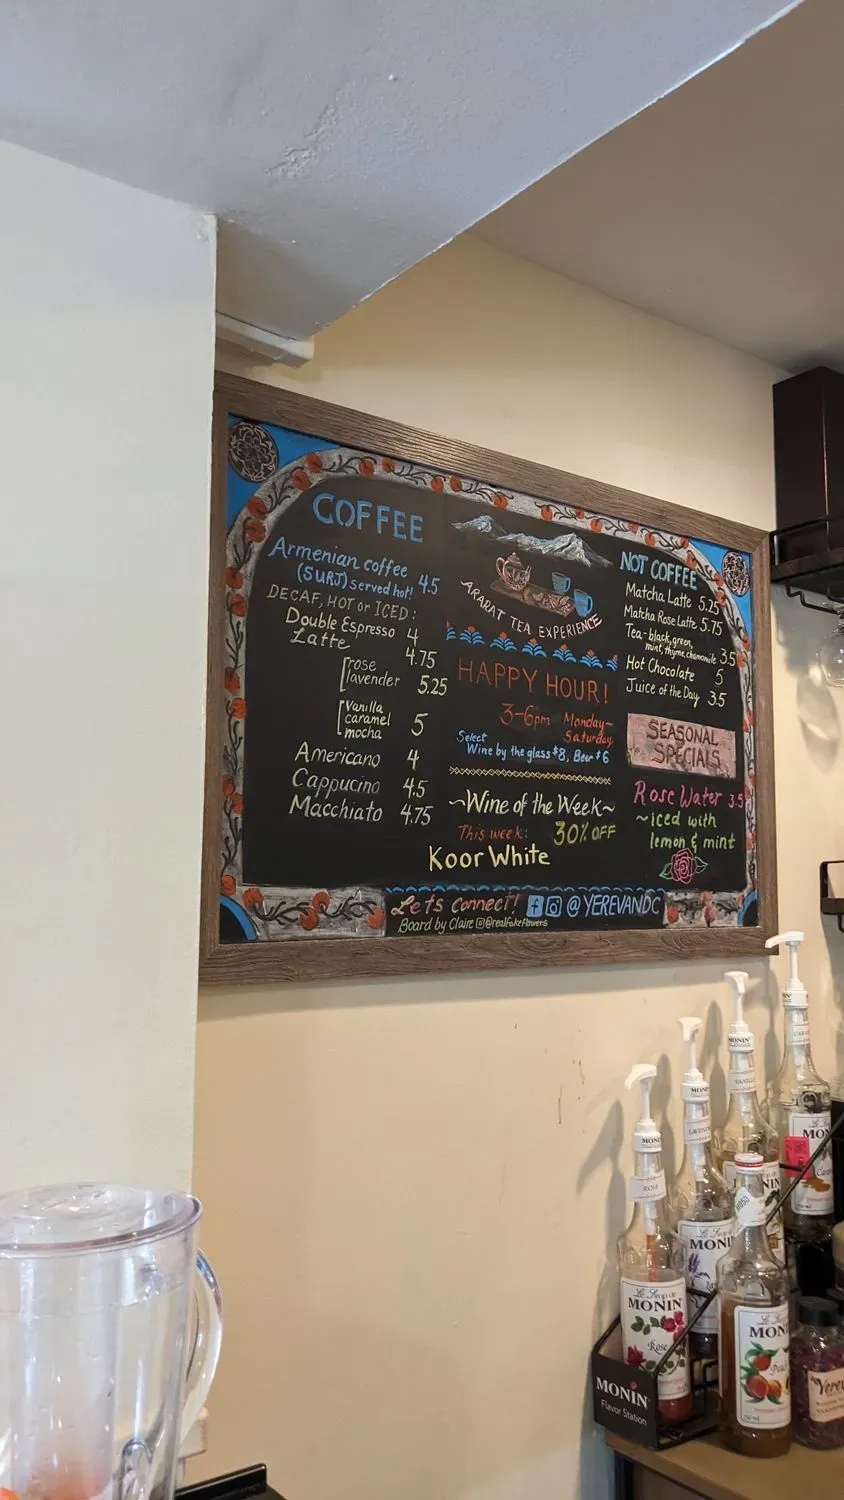 COFFEE
Armenian coffee
(SURJ) served hot! 4.5
DECAF, HOT or ICED:
Double Espresso 4
Latte 4.75
rose
lavender 5.25
vanilla
caramel 5
mocha
Americano 4
Cappucino 4.5
Macchiato 4.75
ARARAT TEA EXPERIENCE
HAPPY HOUR!
3-6pm Monday-
Saturday
Select
Wine by the glass $8, Beer $6
~Wine of the Week~
This week: 30% OFF
Koor White
NOT COFFEE
Matcha Latte 5.25
Matcha Rose Latte 5.75
Tea-black, green,
mint, thyme, chamomile 3.5
Hot Chocolate 5
Juice of the Day 3.5
SEASONAL
SPECIALS
Rose Water 3.5
~iced with
lemon & mint
Lets connect! @YEREVANDC
Board by Claire @realfakeflowers
MONIN
VANILLA
MONIN
ROSE
Le Sirop de
MONIN
Rose
MONIN
Flavor Station